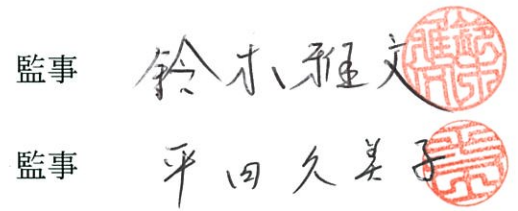 監事 鈴木雅文
監事 平田久美子